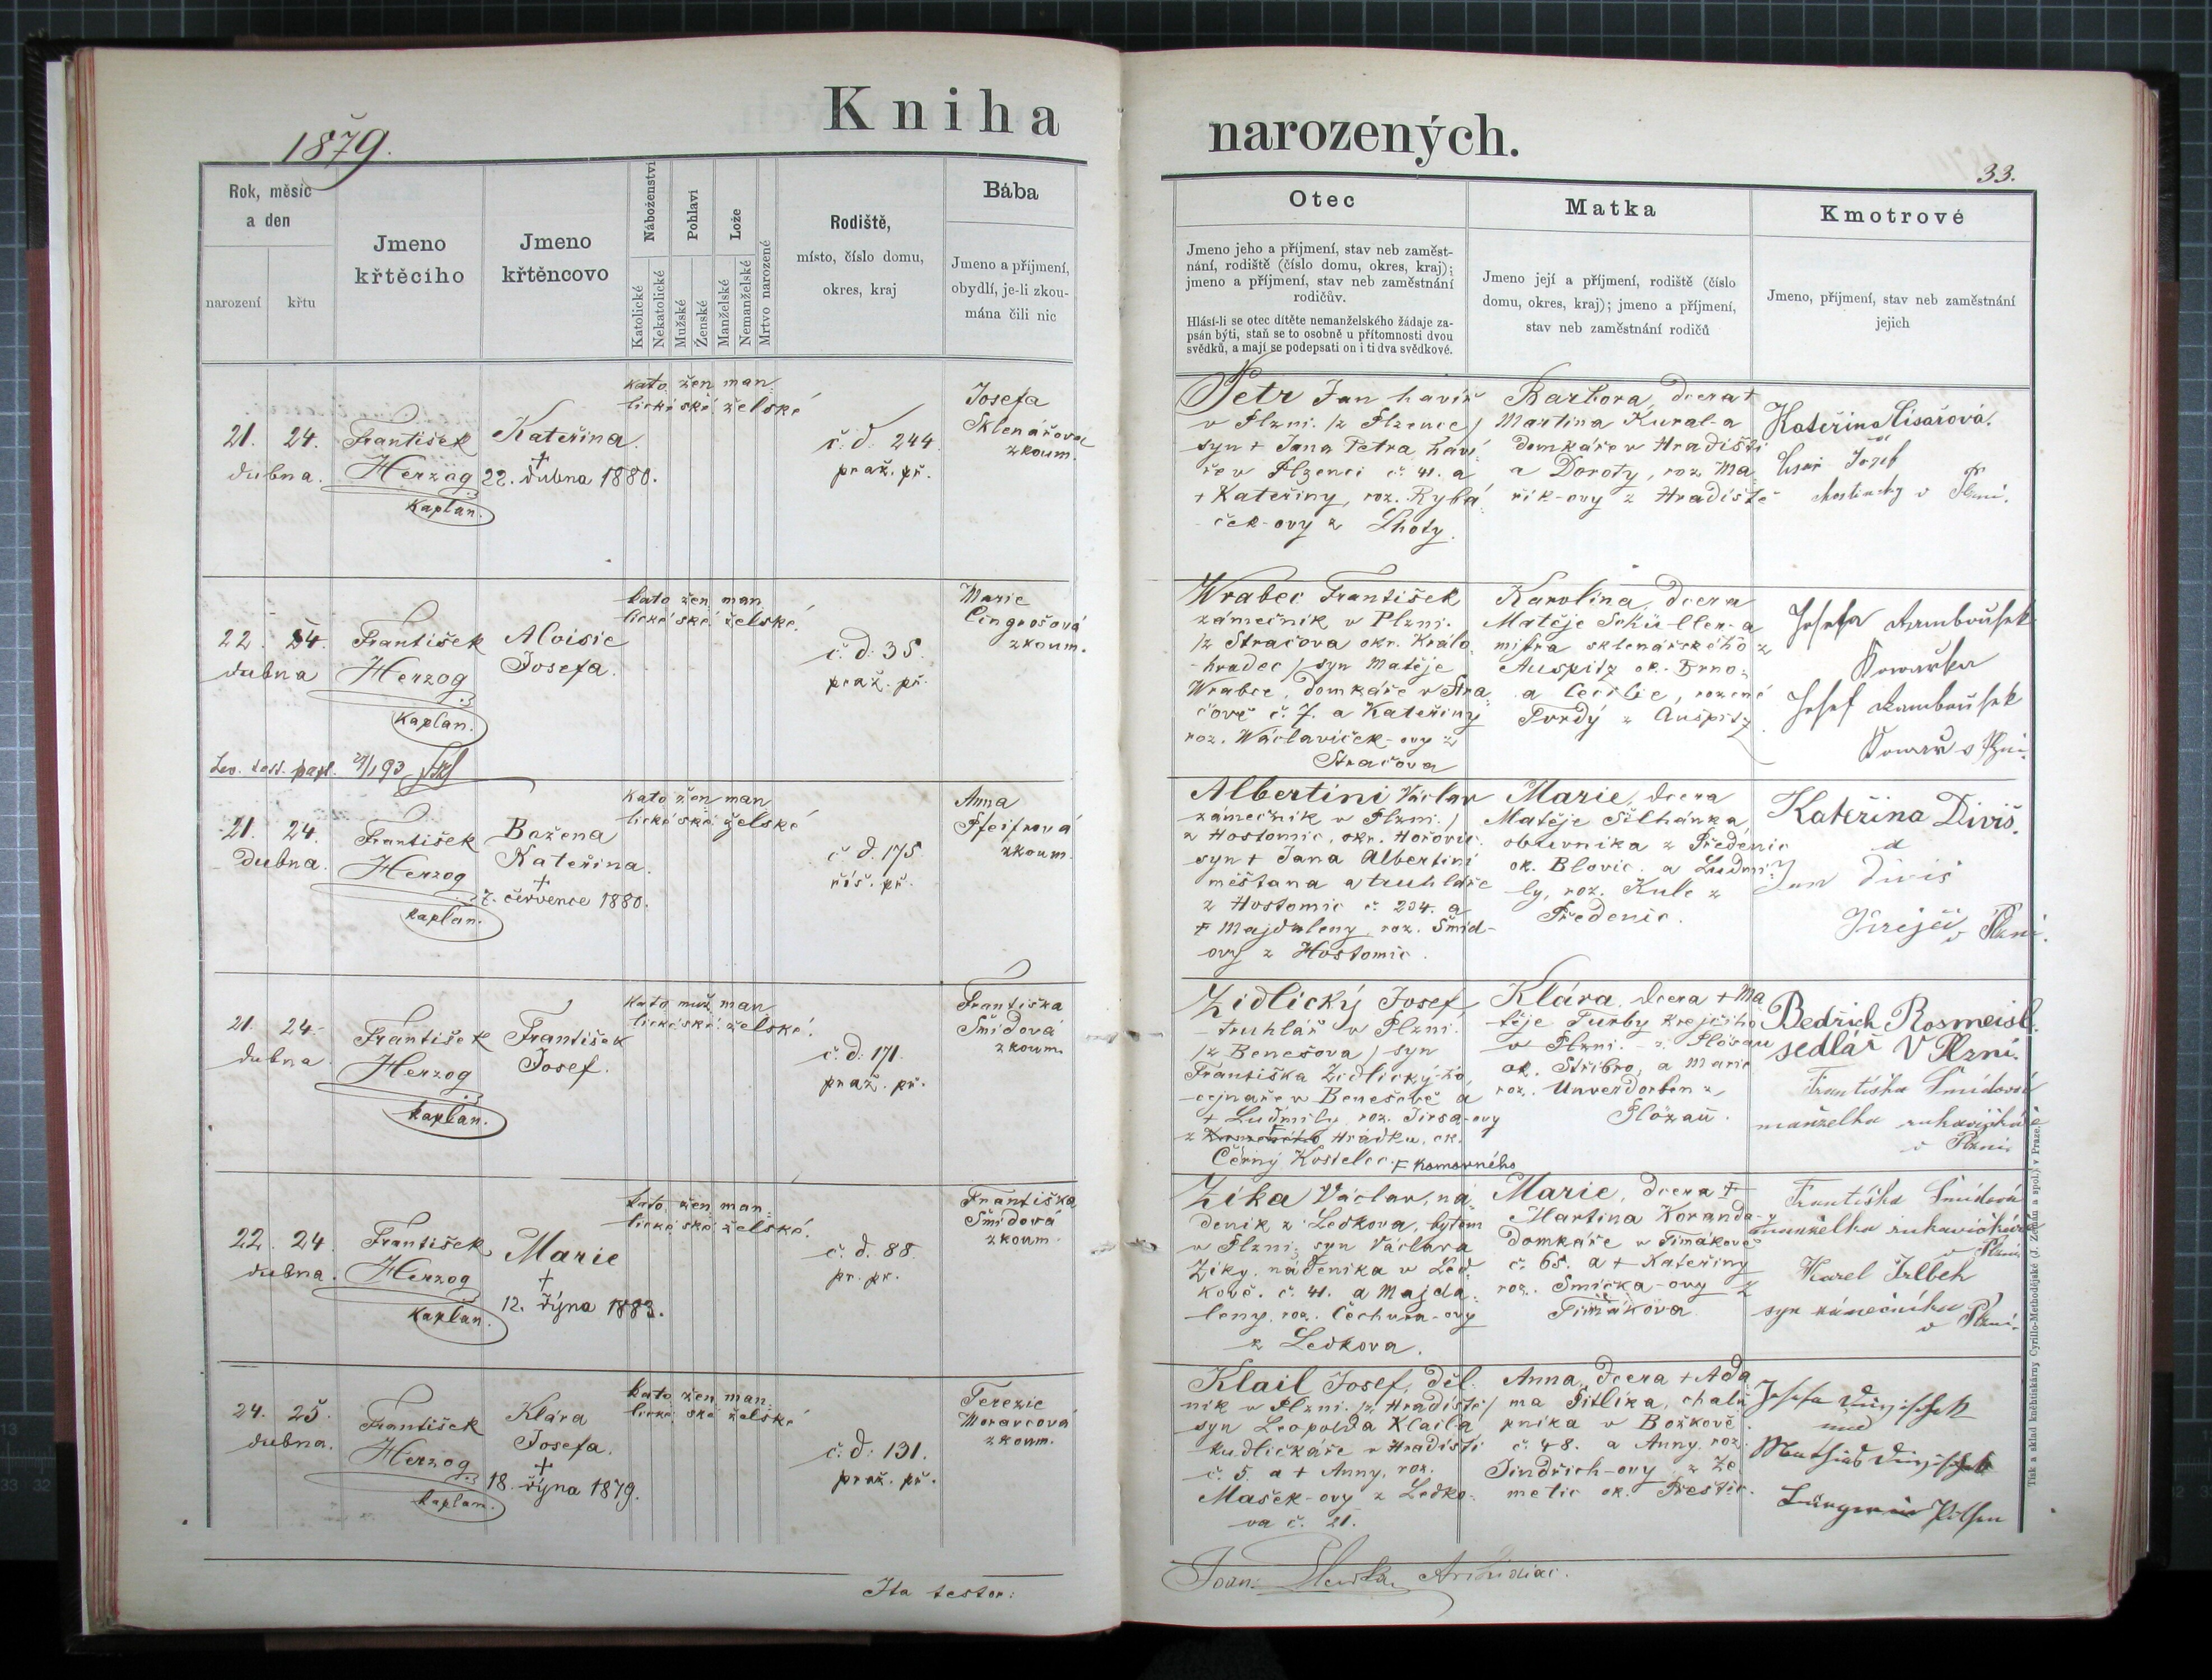 Kniha
narozených.
1879.
33.
Rok, měsíc
a den
narození
křtu
Jmeno
křtěcího
Jmeno
křtěncovo
Náboženství
Katolické
Nekatolické
Pohlaví
Mužské
Ženské
Lože
Manželské
Nemanželské
Mrtvo narozené
Rodiště,
místo, číslo domu,
okres, kraj
Bába
Jmeno a přijmení,
obydlí, je-li zkou-
mána čili nic
Otec
Jmeno jeho a příjmení, stav neb zaměst-
nání, rodiště (číslo domu, okres, kraj);
jmeno a příjmení, stav neb zaměstnání
rodičův.
Hlásí-li se otec dítěte nemanželského žádaje za-
psán býti, staň se to osobně u přítomnosti dvou
svědků, a mají se podepsati on i ti dva svědkové.
Matka
Jmeno její a příjmení, rodiště (číslo
domu, okres, kraj); jmeno a příjmení,
stav neb zaměstnání rodičů
Kmotrové
Jmeno, přijmení, stav neb zaměstnání
jejich
21. 24.
dubna.
František
Herzog
kaplan.
Kateřina.
+
22. dubna 1880.
kato žen man
lické ské želské
č. d. 244
praž. př.
Josefa
Sklenářova
zkoum.
Petr Jan havíř
v Plzni. /z Plzence/
syn + Jana Petra, haví
ře v Plzenci č. 41. a
+ Kateřiny, roz. Rybá
ček-ovy z Lhoty.
Barbora, dcera +
Martina Kural-a
domkáře v Hradišti
a Doroty, roz. Ma
řík-ovy z Hradiště
Kateřina Lisařová.
Josef
v Plzni.
22. 24.
dubna
František
Herzog
kaplan.
Aloisie
Josefa.
kato žen man
lické ské želské.
č. d: 35.
praž. př.
Marie
Cingrošová
zkoum.
Wrabec František
zámečník v Plzni.
/z Stračova okr. Králo
hradec/ syn Matěje
Wrabce, domkáře v Stra
čově č. 7. a Kateřiny
roz. Wáclavíček-ovy z
Stračova
Karolina, dcera
Matěje Schüller-a
mistra sklenářského z
Auspitz ok. Brno
a Cecilie, rozené
Tvrdý z Auspitz
Josef
21. 24.
dubna.
František
Herzog
kaplan.
Božena
Kateřina.
+
7. července 1880.
kato žen man
lické ské želské
č. d. 175
říš. př.
Anna
Pfeifrová
zkoum.
Albertini Václav
zámečník v Plzni. /
z Hostomic, okr. Hořovic.
syn + Jana Albertini
měšťana a truhláře
z Hostomic č. 234. a
+ Majdaleny, roz. Šmíd-
ovy z Hostomic.
Marie, dcera
Matěje Silhánka,
obuvníka z Předenic
ok. Blovic. a Ludmi
ly, roz. Kule z
Předenic.
Kateřina Diviš.
a
Jan Diviš
Krejčí v Plzni.
21. 24.
dubna.
František
Herzog
kaplan.
František
Josef.
kato muž man
lické ské želské.
č. d: 171.
praž. př.
Františka
Šmídová
zkoum.
Židlický Josef,
truhlář v Plzni.
/z Benešova/ syn
Františka Židlický-ho,
v Benešově a
+ Ludmily, roz. Jirsa-ovy
z Hrádku, ok.
Černý Kostelec. F komorného
Klára, dcera + Ma
těje Turby krejčího
v Plzni.
ok. Stříbro, a Marie
roz. Unverdorben z
Bedřich Rosmeisl.
sedlář V Plzni.
Františka Šmídová
manželka rukavičkáře
v Plzni
22. 24.
dubna.
František
Herzog
kaplan.
Marie
+
12. října 1883.
kato žen man
lické ské želské.
č. d. 88.
pr. př.
Františka
Šmídová
zkoum.
Zika Václav, ná
deník z Ledkova, bytem
v Plzni; syn Václava
Ziky, nádeníka v Led
kově. č. 41. a Majda
leny, roz. Čechura-ovy
z Ledkova.
Marie, dcera +
Martina Koranda-y
domkáře v Timákově
č. 65. a + Kateřiny
roz. Smička-ovy z
Timákova
Františka Šmídová
manželka rukavičkáře
v Plzni
Karel
syn zámečníka
v Plzni.
24. 25.
dubna.
František
Herzog
kaplan.
Klára
Josefa.
+
18. října 1879.
kato žen man
lické ské želské
č. d: 131.
praž. př.
Terezie
Moravcová
zkoum.
Klail Josef, děl
ník v Plzni. /z Hradiště/
syn Leopolda Klaila
kudličkáře v Hradišti
č. 5. a + Anny, roz.
Mašek-ovy z Ledko-
va č. 21.
Anna, dcera + Ada
ma Pitlíka, chalu
pníka v Božkově
č. 48. a Anny, roz.
Jindřich-ovy z Že
metic ok. Přestic.
Josefa
und
Mathias
Bürger in Pilsen
Ita testor:
Joan:
Archidiac.
Tisk a sklad kněhtiskárny Cyrillo-Methodějské (J. Zeman a spol.) v Praze.